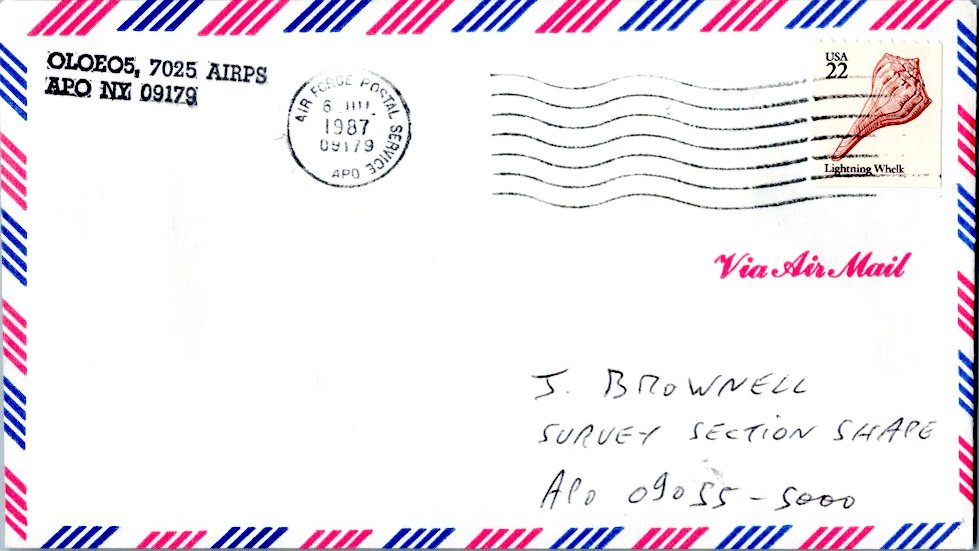 OLOEO5, 7025 AIRPS
APO NY 09179
AIR FORCE POSTAL SERVICE
6
1987
09179
APO
USA
22
Lightning Whelk
Via Air Mail
J. BROWNELL
SURVEY SECTION SHAPE
APO 09055-5000